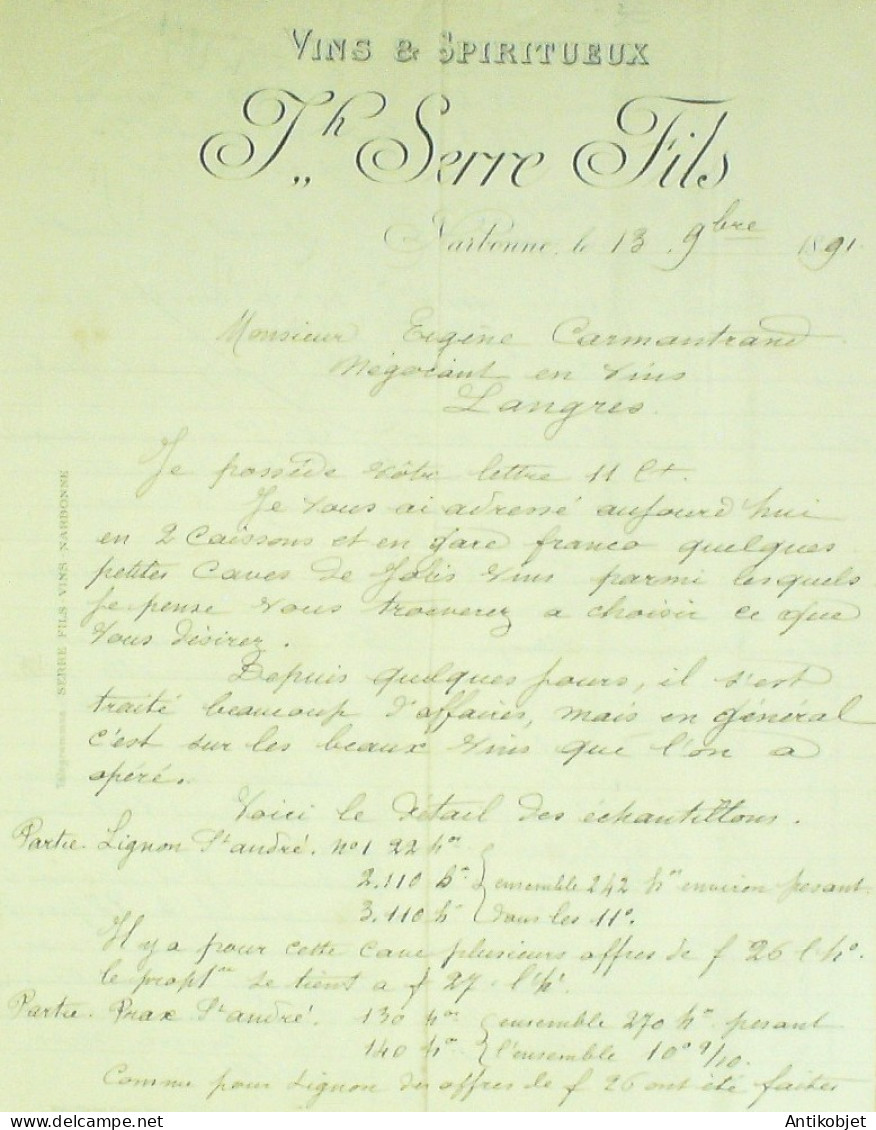 VINS & SPIRITUEUX
J.h Serre Fils
Narbonne, le 13 9bre 1891.
Monsieur Eugène Carmantrand
Négociant en vins
Langres.
Je possède vôtre lettre 11 Ct.
Je vous ai adressé aujourd'hui
en 2 Caissons et en gare franco quelques
petites caves de Jolis vins parmi lesquels
Je pense vous trouverez a choisir ce que
vous désirez.
Depuis quelques jours, il s'est
traité beaucoup d'affaires, mais en général
c'est sur les beaux vins que l'on a
opéré.
Voici le détail des échantillons.
Partie Lignon St André. No 1 22 hos
2. 110 ho ensemble 242 hos environ pesant
3. 110 ho dans les 11°.
Il y a pour cette cave plusieurs offres de f 26 l'ho.
le proptre se tient a f 27 l'ho.
Partie Prax St André. 130 hos ensemble 270 hos pesant
140 hos l'ensemble 10° 9/10.
Comme pour Lignon des offres de f 26 ont été faites
SERRE FILS VINS NARBONNE
Antikobjet